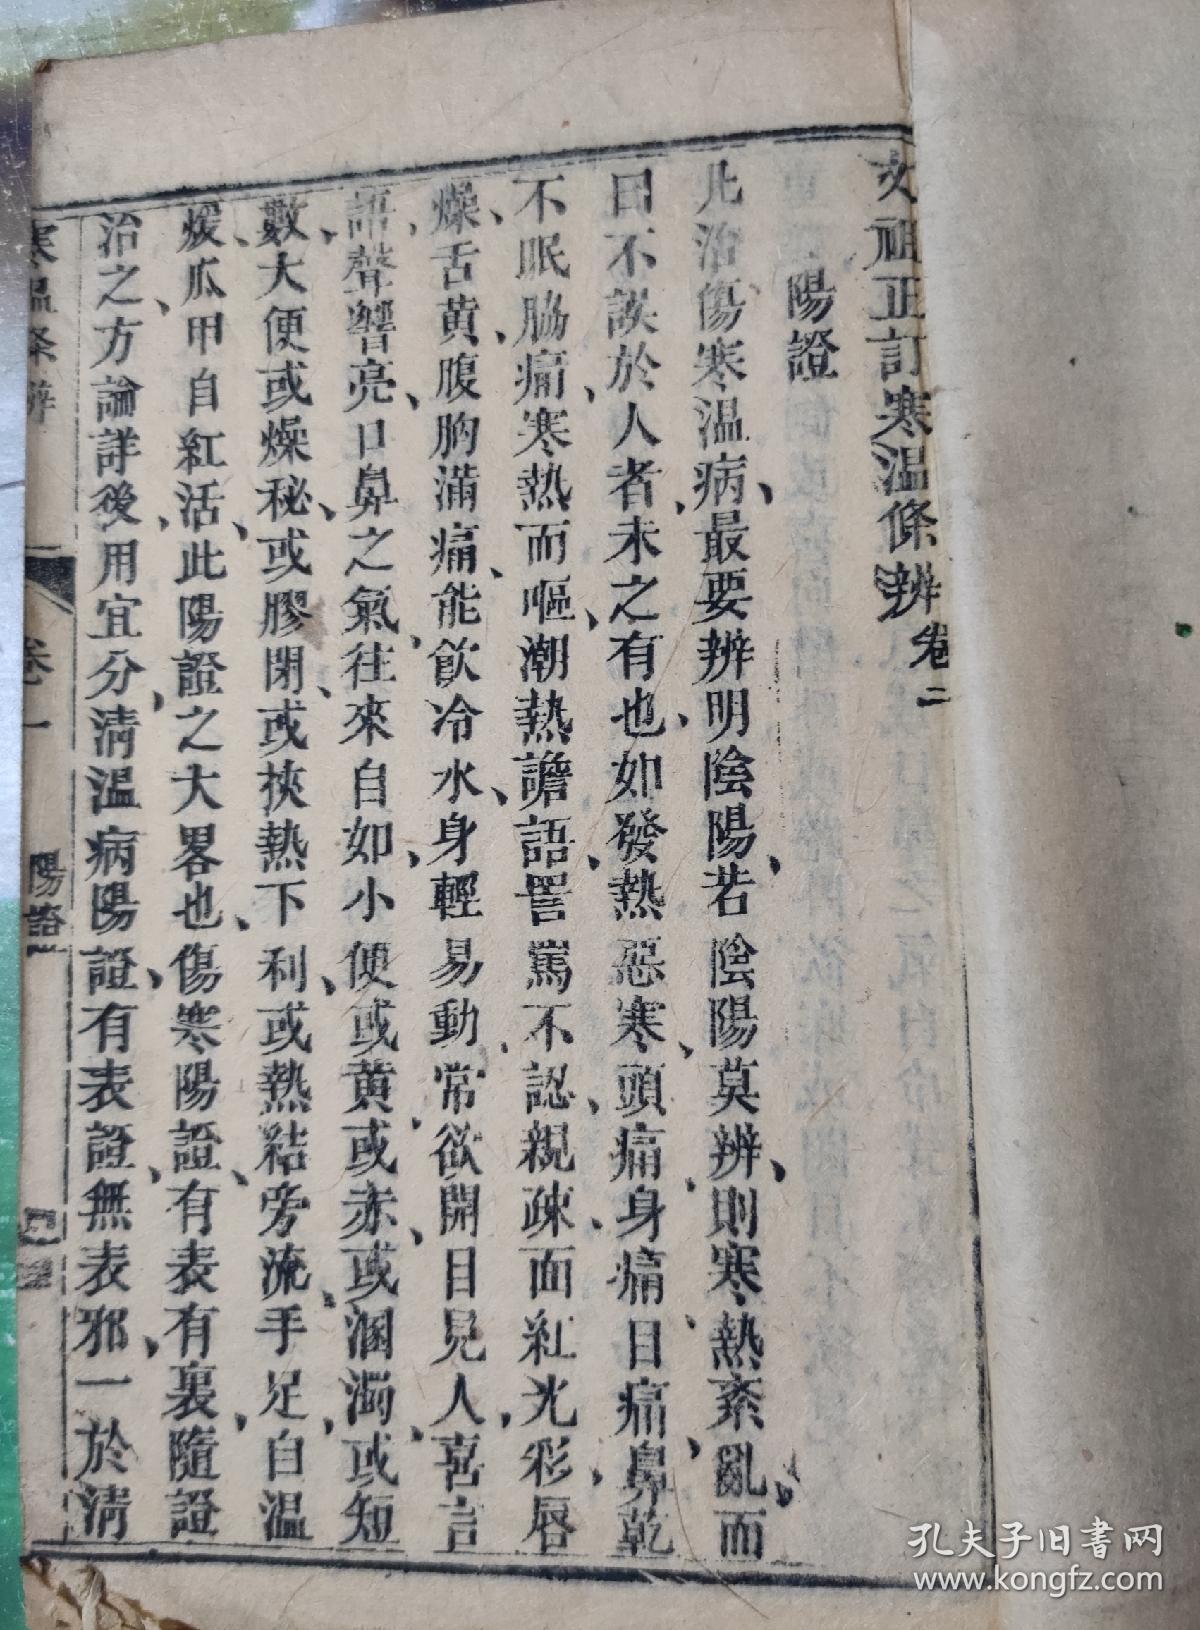 文祖正訂寒温條辨卷二
陽證
凡治傷寒温病最要辨明陰陽若陰陽莫辨則寒熱紊亂而
曰不誤於人者未之有也如發熱惡寒頭痛身痛目痛鼻乾
不眠脇痛寒熱而嘔潮熱譫語詈罵不認親疎面紅光彩唇
燥舌黄腹胸滿痛能飲冷水身輕易動常欲開目見人喜言
語聲響亮口鼻之氣往來自如小便或黄或赤或溷濁或短
數大便或燥秘或膠閉或挾熱下利或熱結旁流手足自温
煖瓜甲自紅活此陽證之大畧也傷寒陽證有表有裏隨證
治之方論詳後用宜分清温病陽證有表證無表邪一於清
寒温条辨
卷二
陽證
孔夫子旧书网
www.kongfz.com